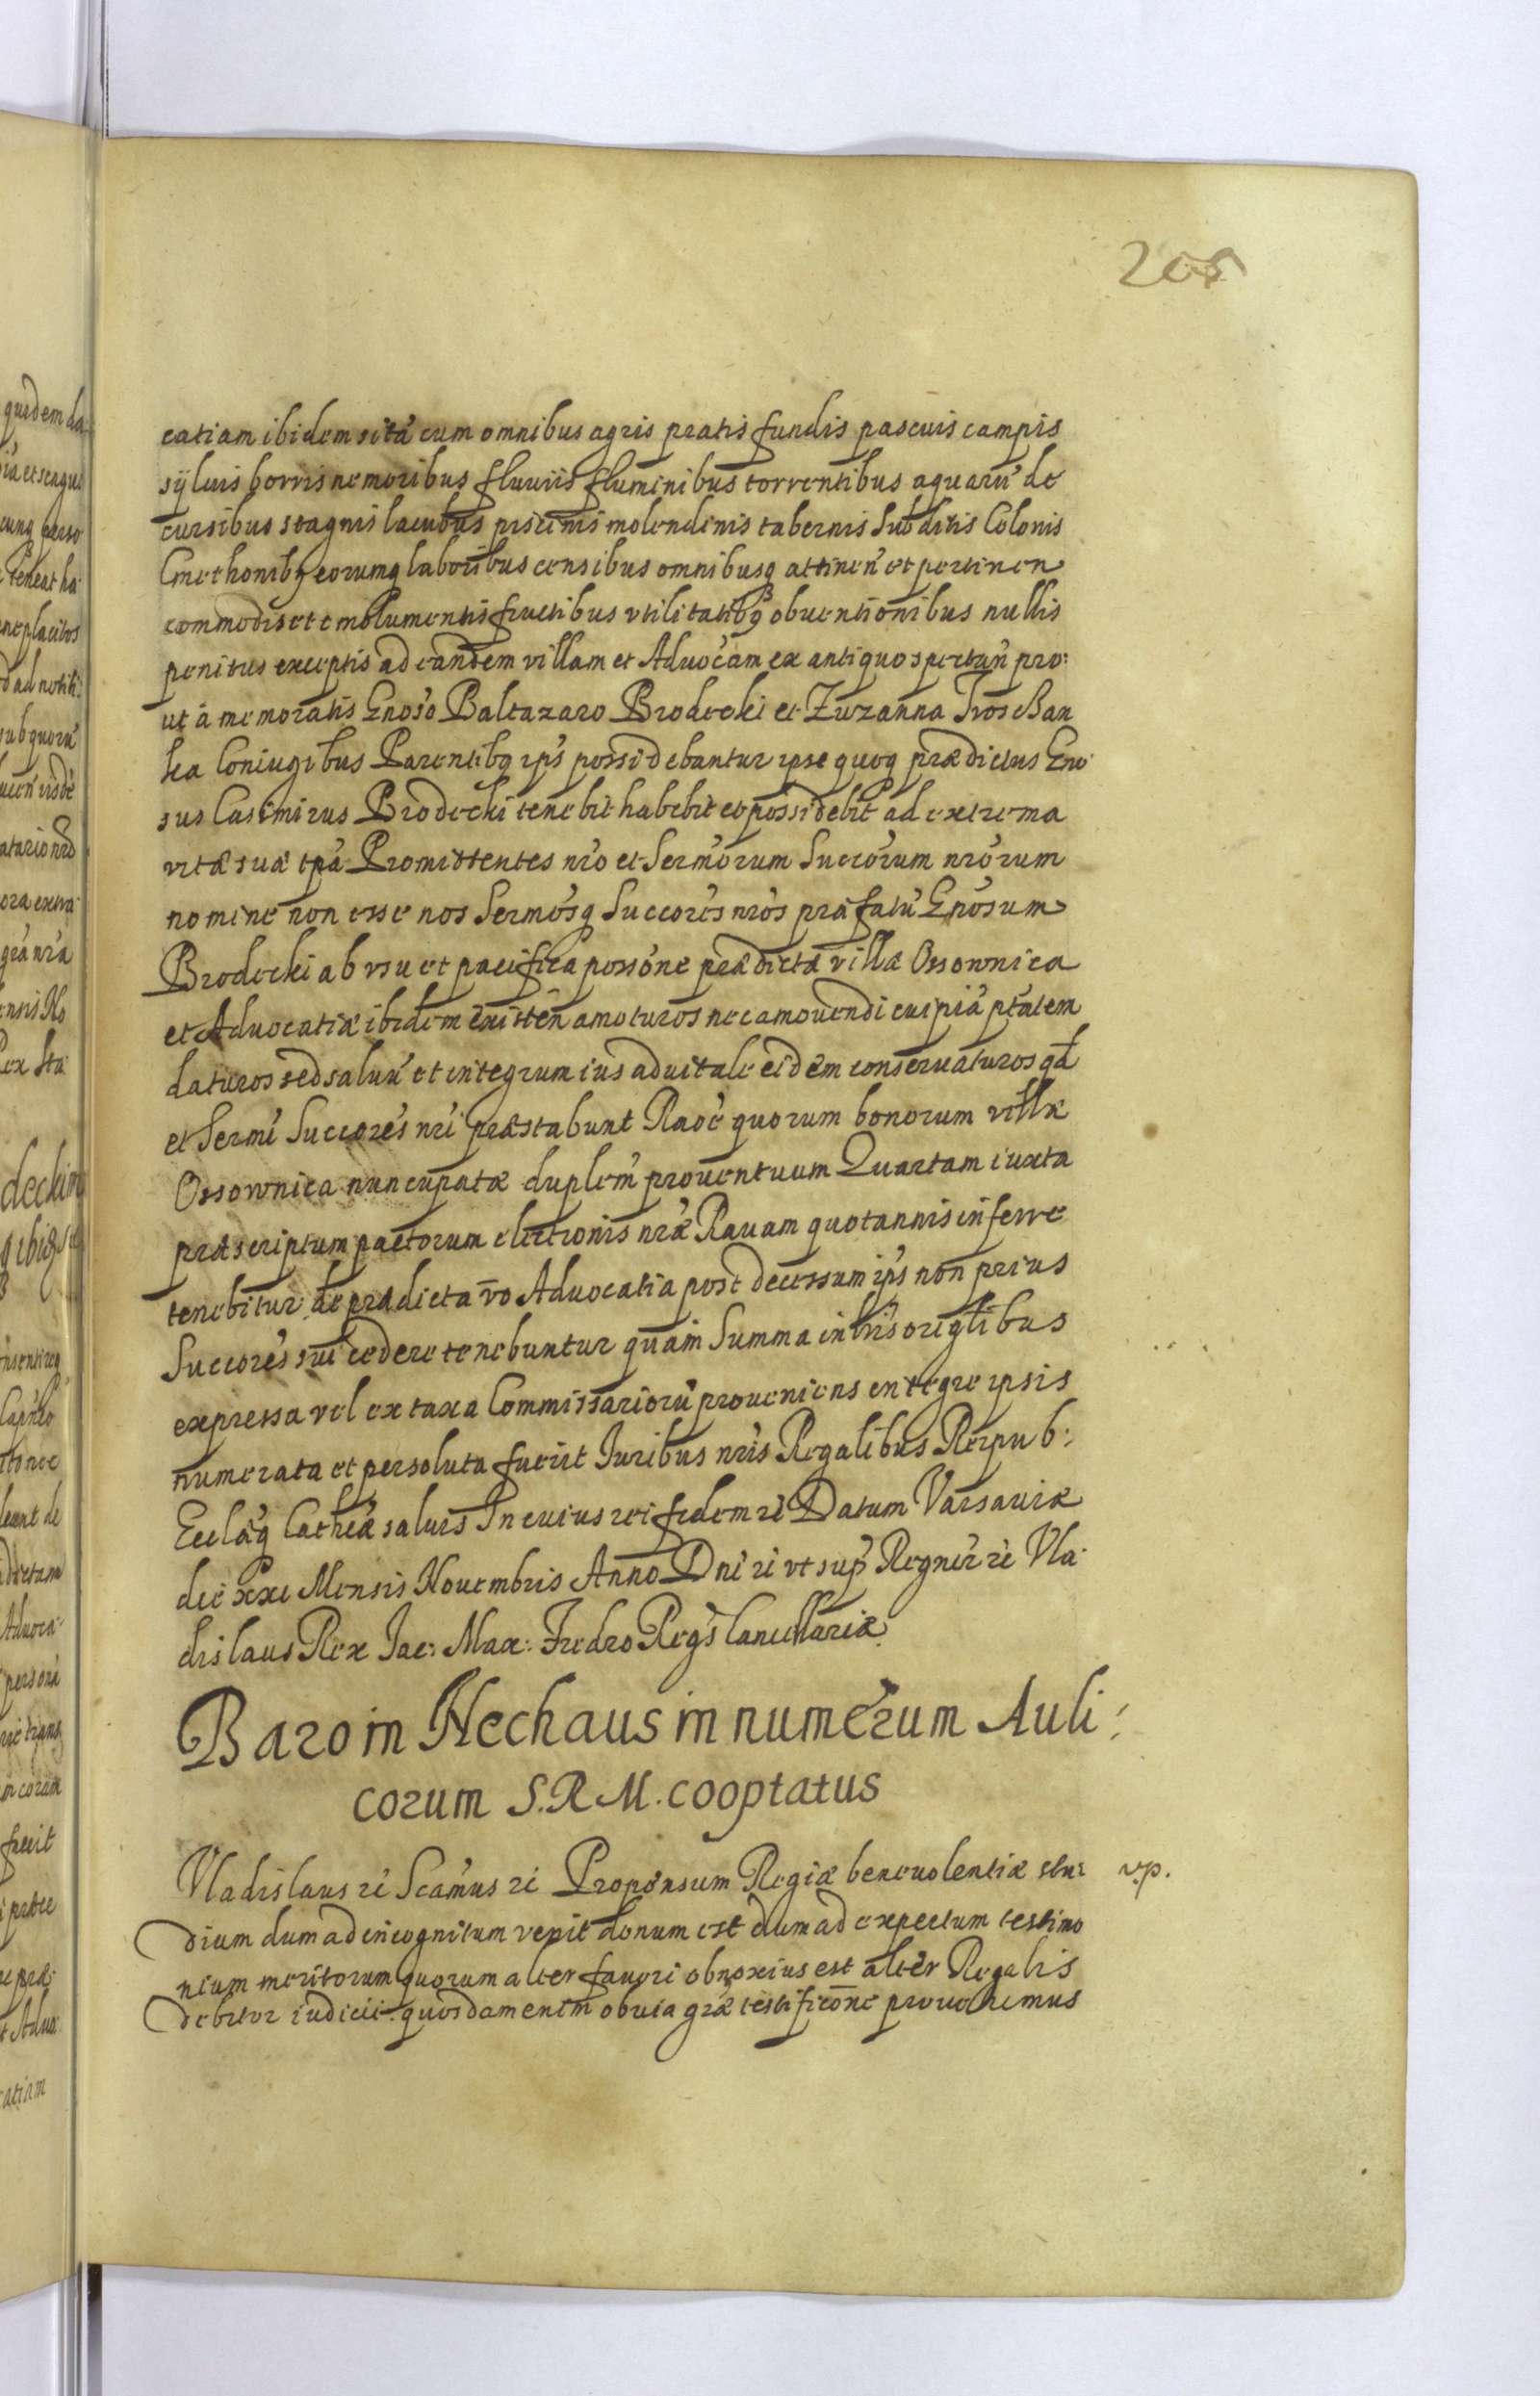 205
catiam ibidem sitā cum omnibus agris pratis fundis pascuis campis
sÿluis borris nemoribus fluuiis fluminibus torrentibus aquarū de
cursibus stagnis lacubus piscinis molendinis tabernis Subditis Colonis
Cmethonibq eorumq laboribus censibus omnibusq attinen̄ et pertinen
commodis et emolumentis fructibus vtilitatibq obuentionibus nullis
penitus exceptis ad eandem villam et Aduocām ex antiquo spectan̄ pro:
ut à memoratis Gnoso Baltazaro Brodecki et Zuzanna Troschan
ka Coniugibus Parentibq ips possidebantur ipse quoq prædictus Gno
sus Casimirus Brodecki tenebit habebit et possidebit ad extrema
vitæ suæ tpa Promittentes nro et Sermorum Succorum nrorum
nomine non esse nos Sermosq Succores nros præfatū Gnosum
Brodecki ab vsu et pacifica possone prædictæ villæ Ossownica
et Aduocatiæ ibidem existen̄ amoturos nec amouendi cuipiā ptatem
daturos sed saluū et integrum ius aduitale eidem conseruaturos qd
et Sermi Succores nri præstabunt Raōe quorum bonorum villæ
Ossownica nuncupatæ duplem prouentuum Quartam iuxta
præscriptum pactorum electionis nræ Rauam quotannis inferre
tenebitur de prædicta vō Aduocatia post decessum ips non prius
Succores sui cedere tenebuntur quam Summa in lris origlibus
expressa vel ex taxa Commissariorū proueniens integre ipsis
numerata et persoluta fuerit Iuribus nris Regalibus Reipub:
Eccla'q Cathcæ saluis In cuius rei fidem rē Datum Varsauiæ
die xxi Mensis Nouembris Anno Dni rē vt sup Regnor rē Vla
dislaus Rex Jac: Max: Fredro Regs Cancellariæ
Baro in Hechaus in numerum Auli:
corum S.R M. cooptatus
Vladislaus rē Scamus rē Propensum Regiæ beneuolentiæ stu: vp.
dium dum ad incognitum venit donum est dum ad expectum testimo
nium meritorum quorum alter fauori obnoxius est alter Regalis
debitor iudicii quosdam enim obuia græ testificōne prouehimus